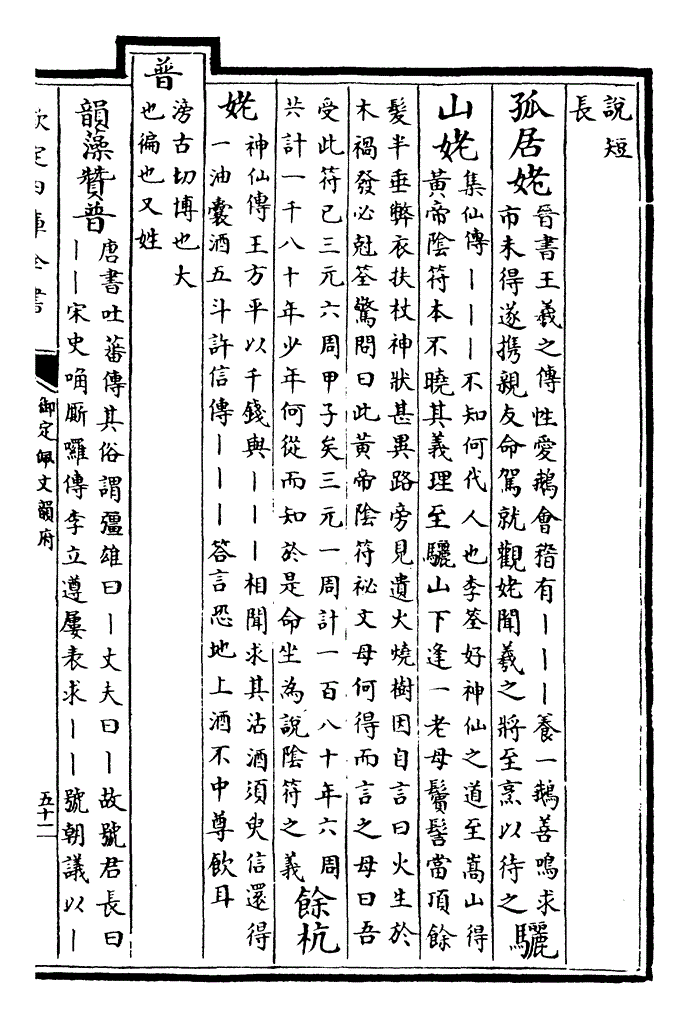 說短
長
孤居姥
晉書王羲之傳性愛鵝會稽有丨丨丨養一鵝善鳴求
市未得遂攜親友命駕就觀姥聞羲之將至烹以待之
驪
山姥
集仙傳丨丨丨不知何代人也李筌好神仙之道至嵩山得
黃帝陰符本不曉其義理至驪山下逢一老母鬢髻當頂餘
髮半垂弊衣扶杖神狀甚異路旁見遺火燒樹因自言曰火生於
木禍發必尅筌驚問曰此黃帝陰符祕文母何得而言之母曰吾
受此符已三元六周甲子矣三元一周計一百八十年六周
共計一千八十年少年何從而知於是命坐為說陰符之義
餘杭
姥
神仙傳王方平以千錢與丨丨丨相聞求其沽酒須臾信還得
一油囊酒五斗許信傳丨丨丨答言恐地上酒不中尊飲耳
普
滂古切博也大
也徧也又姓
韻藻贊普
唐書吐蕃傳其俗謂彊雄曰丨丈夫曰丨故號君長曰
丨丨宋史唃厮囉傳李立遵屢表求丨丨號朝議以丨
欽定四庫全書
御定佩文韻府
五十一